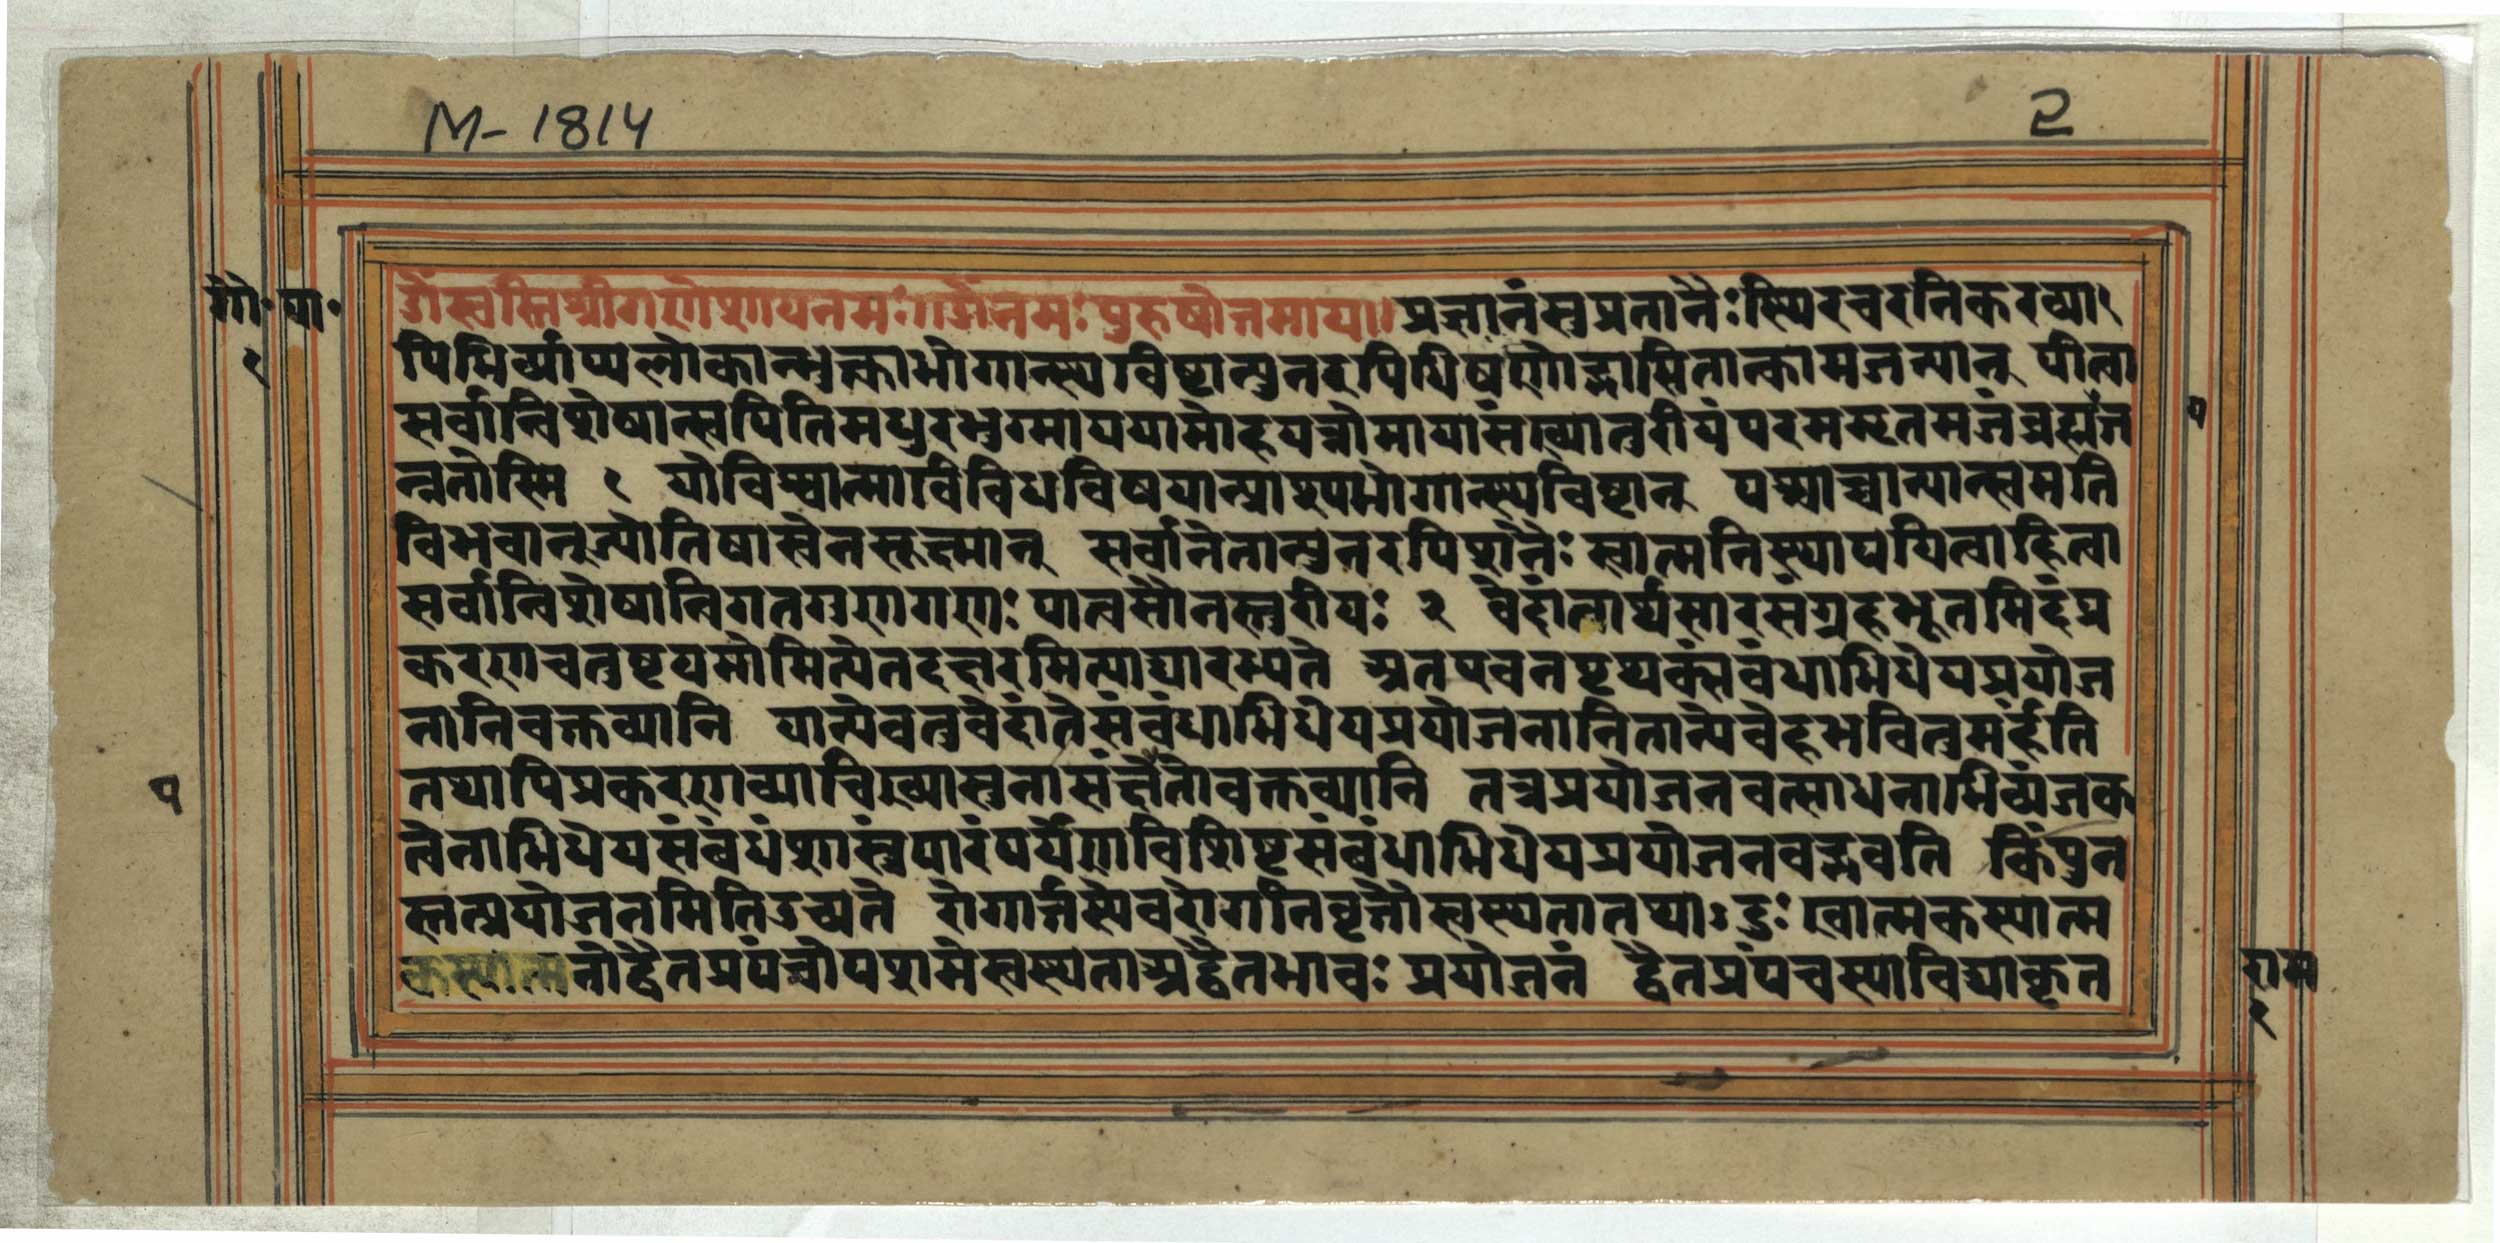 M-1814
2
गौ॰ पा॰
१
ॐ स्वस्ति श्रीगणेशायनमः॥ ॐनमः पुरुषोत्तमाय॥ प्रज्ञानंसुप्रतानैः स्थिरचरनिकरव्या
पिभिर्व्याप्यलोकान्भुक्त्वाभोगान्स्थविष्टान्पुनरपिधिषणोद्भासितान्कामजन्यान् पीत्वा
सर्वान्विशेषान्स्वपितिमधुरभुग्माययामोहयन्नोमायासंख्यातुरीयंपरममृतमजंब्रह्मज
न्नतोस्मि १ योविश्वात्माविविधविषयान्प्राश्यभोगान्स्थविष्टान् पश्चाच्चान्यान्स्वमति
विभवान्ज्योतिषास्वेनसूक्ष्मान् सर्वानेतान्पुनरपिशनैः स्वात्मनिस्थापयित्वाहित्वा
सर्वान्विशेषान्विगतगुणगणः पात्वसौनस्तुरीयः २ वेदांतार्थसारसंग्रहभूतमिदंप्र
करणचतुष्टयमोमित्येतदक्षरमित्याद्यारभ्यते अतएवनपृथक्संबंधाभिधेयप्रयोज
नानिवक्तव्यानि यान्येवतुवेदांतेसंबंधाभिधेयप्रयोजनानितान्येवेहभवितुमर्हंति
तथापिप्रकरणव्याचिख्यासुनासंक्षेपतोवक्तव्यानि तत्रप्रयोजनवत्साधनाभिव्यंजक
त्वेनाभिधेयसंबंधंशास्त्रंपारंपर्येणविशिष्टसंबंधाभिधेयप्रयोजनवद्भवति किंपुन
स्तत्प्रयोजनमितिउच्यते रोगार्त्तस्येवरोगनिवृत्तौस्वस्थतातथा दुःखात्मकस्यात्म
कस्यात्मनोद्वैतप्रपंचोपशमेस्वस्थताअद्वैतभावः प्रयोजनं द्वैतप्रपंचस्याविद्याकृत
राम
१